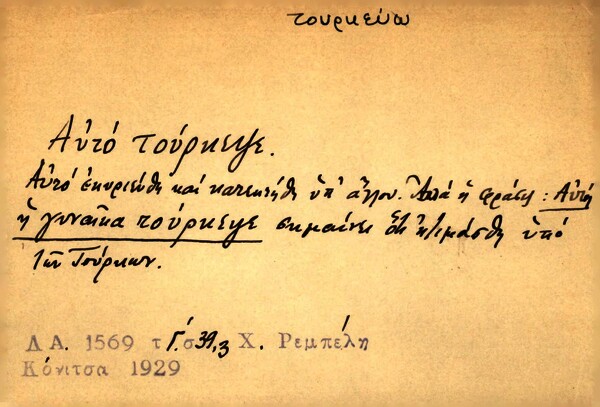 τουρκεύω
Αὐτό τούρκεψε.
Αὐτό ἐκυριεύθη καί κατεκτήθη ὑπ' ἄλλου. Ἀλλά ἡ φράσις: Αὐτή
ἡ γυναῖκα τούρκεψε σημαίνει ὅτι ἠτιμάσθη ὑπό
τῶν Τούρκων.
Λ.Α. 1569 τ Γ΄. σ 39,3 Χ. Ρεμπέλη
Κόνιτσα 1929